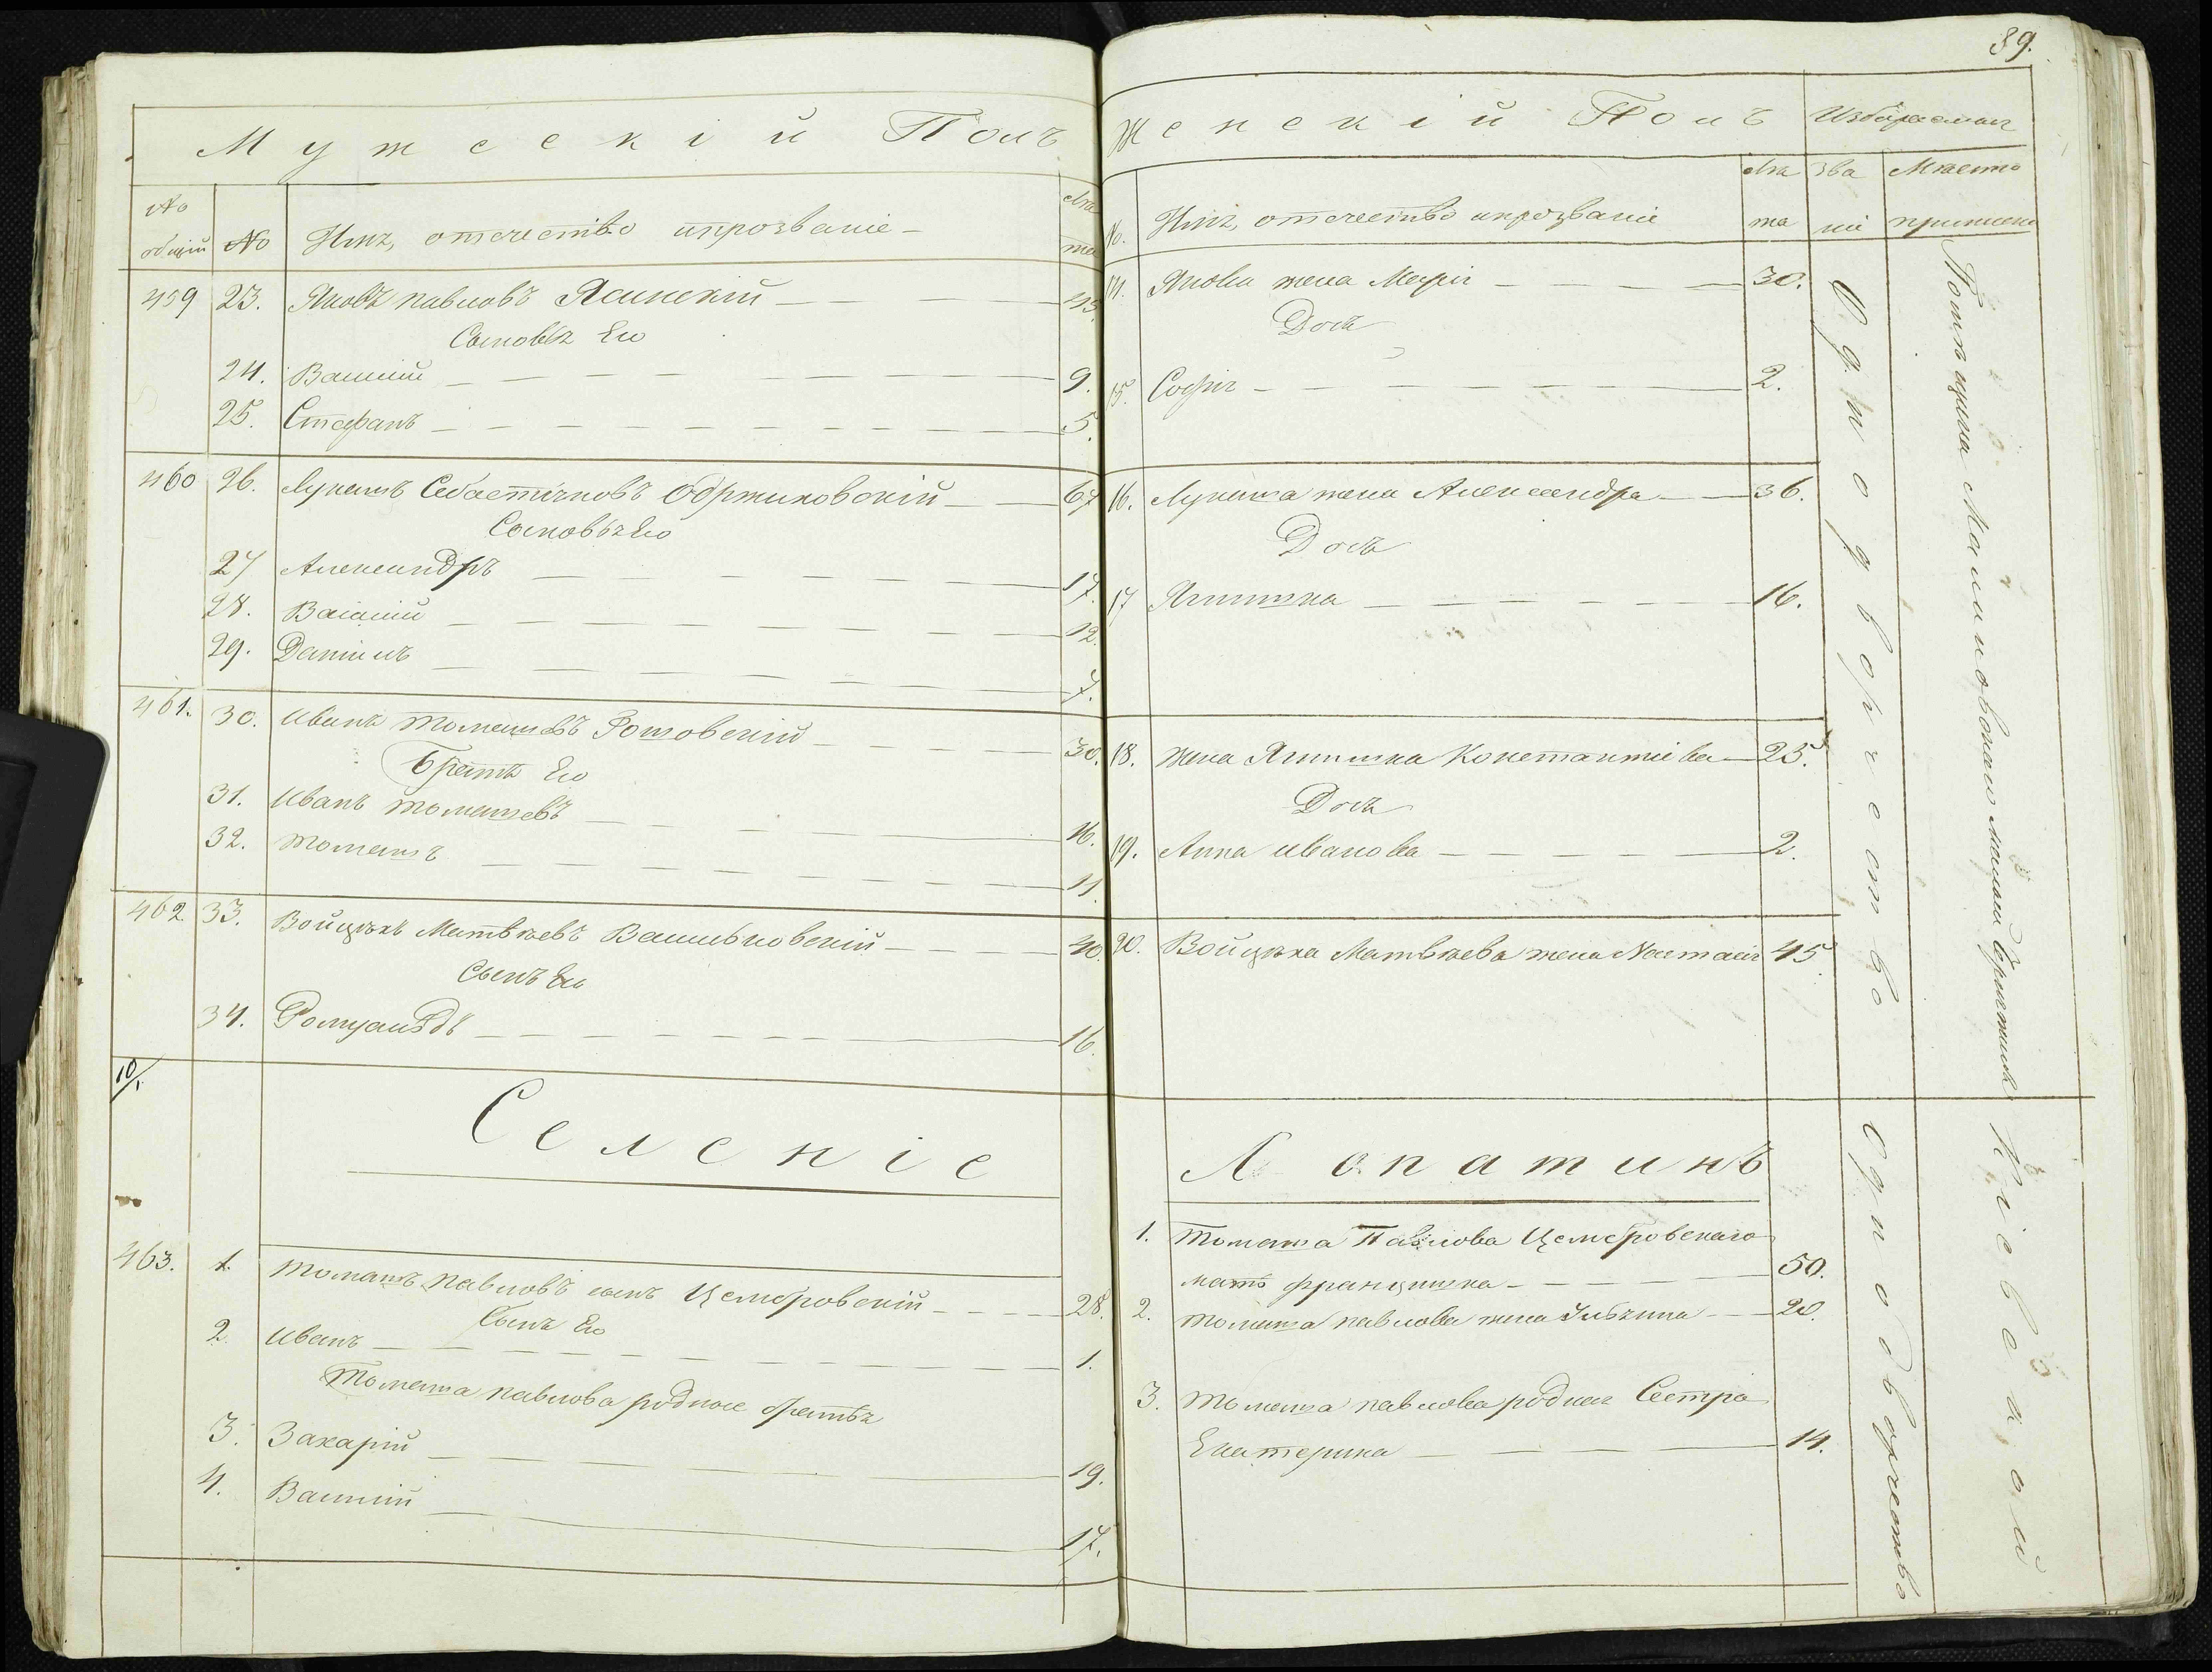 89.
Мужескій Полъ
№ общій
№
Имя, отечество и прозваніе
лѣта
459 23. Яковъ Павловъ Ясинскій 43.
Сыновья Его
24. Василій 9.
25. Стефанъ 5.
460 26. Лукашъ Себастіяновъ Обржиховскій 67
Сыновья Его
27 Александръ 17.
28. Василій 12.
29. Даніилъ 7.
461. 30. Иванъ Томашевъ 30.
Братья Его
31. Иванъ Томашевъ 16.
32. Томашъ 11.
462. 33. Войцѣхъ Матвѣевъ Васильковскій 40.
Сынъ Его
34. Ромуальдъ 16.
10/1.
Селеніе
463. 1. Томашъ Павловъ сынъ Цемеровскій 28.
Сынъ Его
2. Иванъ 1.
Томаша Павлова родные братья
3. Захарій 19.
4. Василій 17.
Женскій Полъ
Избираемая
№.
Имя, отечество и прозваніе
лѣта
Званіе
Мѣсто приписки
14. Якова жена Марія 30.
Дочь
15. Софія 2.
16. Лукаша жена Александра 36.
Дочь
17 Ягнишка 16.
18. жена Ягнишка Константіева 25.
Дочь
19. Анна Иванова 2.
20. Войцѣха Матвѣева жена Настасія 45.
Лопатинъ
1. Томаша Павлова Цемеровскаго
мать Францишка 50.
2. Томаша Павлова жена 20.
3. Томаша Павлова родная Сестра
Екатерина 14.
Однодворчество
Помѣщика
Однодворчество
Кіевской